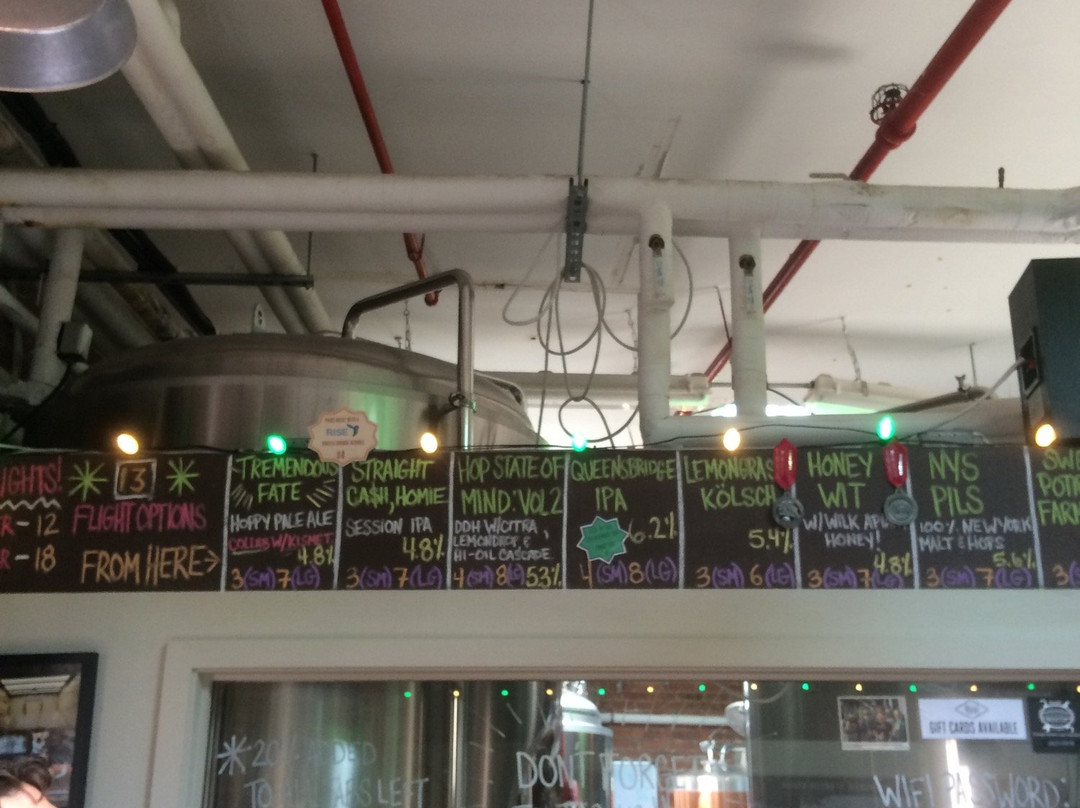 IGHTS!
R - 12
R - 18
13
FLIGHT OPTIONS
FROM HERE→
RISE
TREMENDOUS
FATE
HOPPY PALE ALE
COLLAB W/KISMET
4.8%
3(SM) 7(LG)
STRAIGHT
CA$H, HOMIE
SESSION IPA
4.8%
3(SM) 7(LG)
HOP STATE OF
MIND: VOL 2
DDH W/CITRA,
LEMONDROP, &
HI-OIL CASCADE
4(SM) 8(LG) 5.3%
QUEENSBRIDGE
IPA
6.2%
4(SM) 8(LG)
LEMONGRAS
KÖLSCH
5.4%
3(SM) 6(LG)
HONEY
WIT
W/WILK API
HONEY!
4.8%
3(SM) 7(LG)
NYS
PILS
100% NEW YORK
MALT & HOPS
5.6%
3(SM) 7(LG)
SW
POT
FAR
3(S
GIFT CARDS AVAILABLE
*20% ADDED
TO LEFT
DON'T FORGET
WIFI PASSWORD: